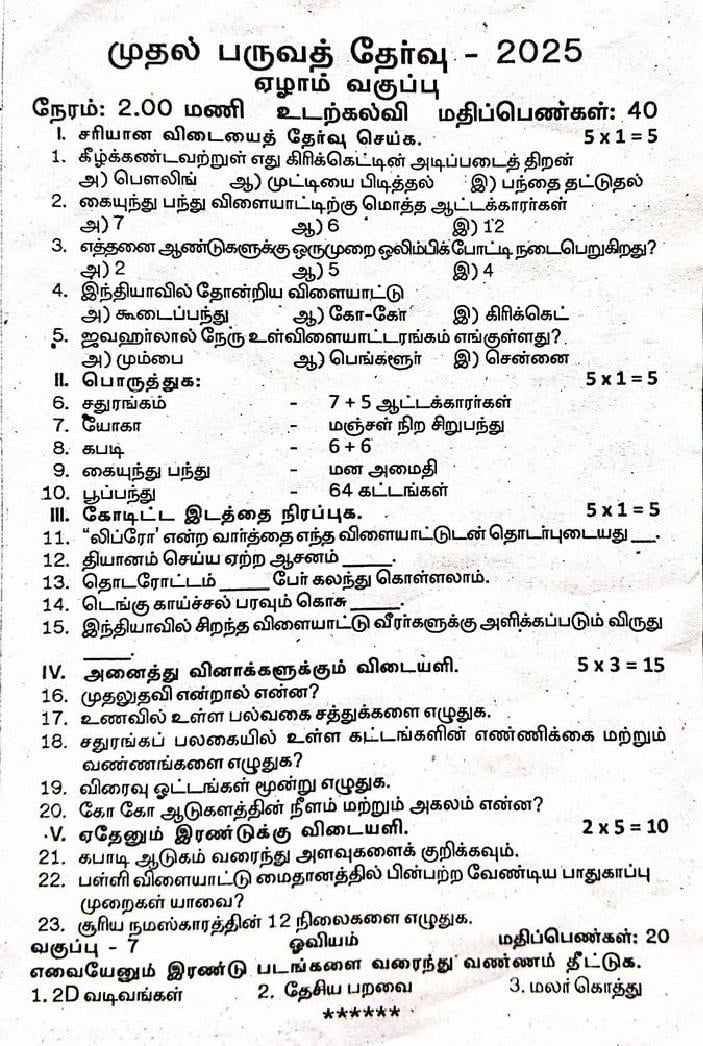 முதல் பருவத் தேர்வு - 2025
ஏழாம் வகுப்பு
நேரம்: 2.00 மணி உடற்கல்வி மதிப்பெண்கள்: 40
I. சரியான விடையைத் தேர்வு செய்க. 5 x 1 = 5
1. கீழ்க்கண்டவற்றுள் எது கிரிக்கெட்டின் அடிப்படைத் திறன்
அ) பௌலிங் ஆ) முட்டியை பிடித்தல் இ) பந்தை தட்டுதல்
2. கையுந்து பந்து விளையாட்டிற்கு மொத்த ஆட்டக்காரர்கள்
அ) 7 ஆ) 6 இ) 12
3. எத்தனை ஆண்டுகளுக்கு ஒருமுறை ஒலிம்பிக் போட்டி நடைபெறுகிறது?
அ) 2 ஆ) 5 இ) 4
4. இந்தியாவில் தோன்றிய விளையாட்டு
அ) கூடைப்பந்து ஆ) கோ-கோ இ) கிரிக்கெட்
5. ஜவஹர்லால் நேரு உள்விளையாட்டரங்கம் எங்குள்ளது?
அ) மும்பை ஆ) பெங்களூர் இ) சென்னை
II. பொருத்துக: 5 x 1 = 5
6. சதுரங்கம் - 7 + 5 ஆட்டக்காரர்கள்
7. யோகா - மஞ்சள் நிற சிறுபந்து
8. கபடி - 6 + 6
9. கையுந்து பந்து - மன அமைதி
10. பூப்பந்து - 64 கட்டங்கள்
III. கோடிட்ட இடத்தை நிரப்புக. 5 x 1 = 5
11. "லிப்ரோ' என்ற வார்த்தை எந்த விளையாட்டுடன் தொடர்புடையது ___.
12. தியானம் செய்ய ஏற்ற ஆசனம் _____.
13. தொடரோட்டம் _____ பேர் கலந்து கொள்ளலாம்.
14. டெங்கு காய்ச்சல் பரவும் கொசு _____.
15. இந்தியாவில் சிறந்த விளையாட்டு வீரர்களுக்கு அளிக்கப்படும் விருது
_____.
IV. அனைத்து வினாக்களுக்கும் விடையளி. 5 x 3 = 15
16. முதலுதவி என்றால் என்ன?
17. உணவில் உள்ள பல்வகை சத்துக்களை எழுதுக.
18. சதுரங்கப் பலகையில் உள்ள கட்டங்களின் எண்ணிக்கை மற்றும்
வண்ணங்களை எழுதுக?
19. விரைவு ஓட்டங்கள் மூன்று எழுதுக.
20. கோ கோ ஆடுகளத்தின் நீளம் மற்றும் அகலம் என்ன?
V. ஏதேனும் இரண்டுக்கு விடையளி. 2 x 5 = 10
21. கபாடி ஆடுகம் வரைந்து அளவுகளைக் குறிக்கவும்.
22. பள்ளி விளையாட்டு மைதானத்தில் பின்பற்ற வேண்டிய பாதுகாப்பு
முறைகள் யாவை?
23. சூரிய நமஸ்காரத்தின் 12 நிலைகளை எழுதுக.
வகுப்பு - 7 ஓவியம் மதிப்பெண்கள்: 20
எவையேனும் இரண்டு படங்களை வரைந்து வண்ணம் தீட்டுக.
1. 2D வடிவங்கள் 2. தேசிய பறவை 3. மலர் கொத்து
******